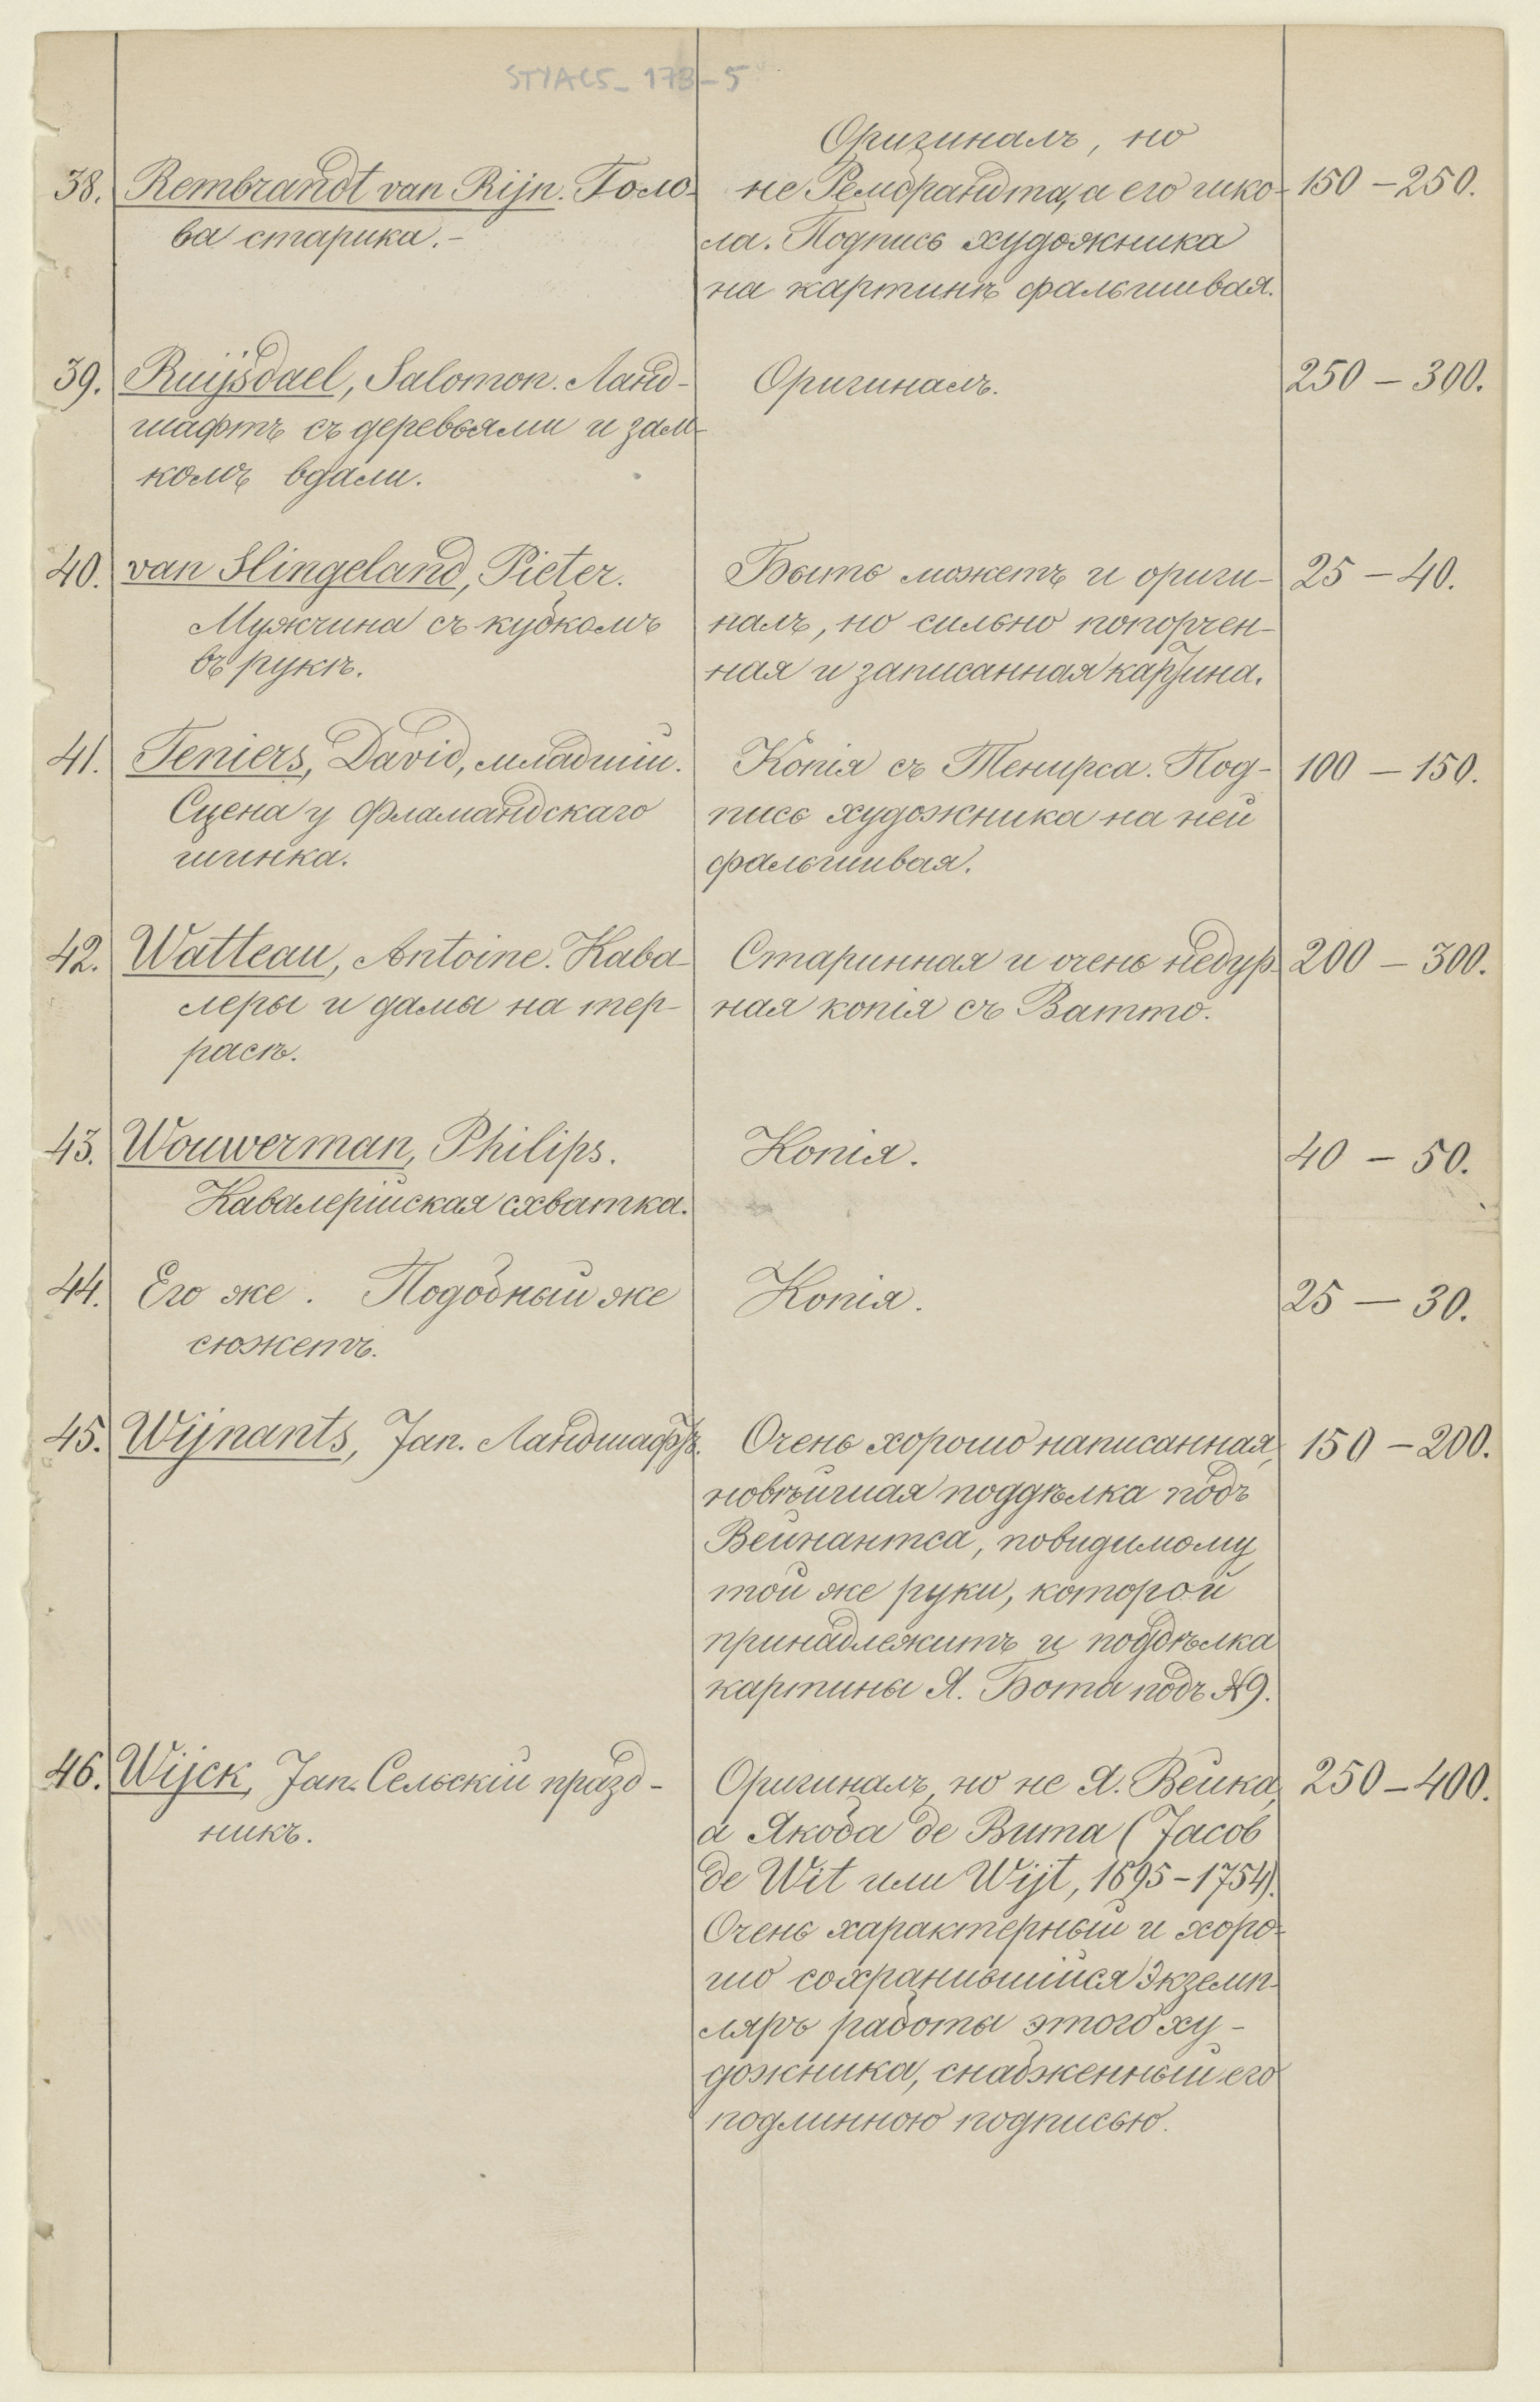 STYACS_173-5
Оригиналъ, но
38. Rembrandt van Rijn. Голо- не Рембрандта, а его шко- 150 – 250.
ва старика. – ла. Подпись художника
на картинѣ фальшивая.
39. Ruijsdael, Salomon. Ланд- Оригиналъ. 250 – 300.
шафтъ съ деревьями и зам-
комъ вдали.
40. van Slingeland, Pieter. Быть можетъ и ориги- 25 – 40.
Мужчина съ кубкомъ налъ, но сильно попорчен-
въ рукѣ. ная и записанная картина.
41. Teniers, David, младшій. Копія съ Тенирса. Под- 100 – 150.
Сцена у фламандскаго пись художника на ней
шинка. фальшивая.
42. Watteau, Antoine. Кава- Старинная и очень недур- 200 – 300.
леры и дамы на тер- ная копія съ Ватто.
расѣ.
43. Wouwerman, Philips. Копія. 40 – 50.
Кавалерійская схватка.
44. Его же. Подобный же Копія. 25 – 30.
сюжетъ.
45. Wijnants, Jan. Ландшафтъ. Очень хорошо написанная, 150 – 200.
новѣйшая поддѣлка подъ
Вейнантса, повидимому
той же руки, которой
принадлежитъ и поддѣлка
картины Я. Бота подъ №9.
46. Wijck, Jan. Сельскій празд- Оригиналъ, но не Я. Вейка, 250 – 400.
никъ. а Якоба де Вита (Jacob
de Wit или Wijt, 1695-1754).
Очень характерный и хоро-
шо сохранившійся экземп-
ляръ работы этого ху-
дожника, снабженный его
подлинною подписью.